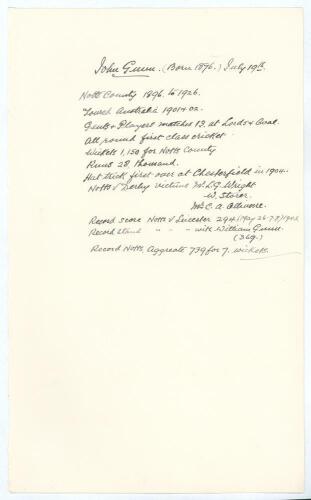 John Gunn. (Born 1876.) July 19th
Notts County 1896. to 1926.
Toured Australia 1901 & 02.
Gents & Players matches 13, at Lords & Oval.
All round first class cricket
Wickets 1,150 for Notts County
Runs 28 thousand.
Hat trick first over at Chesterfield in 1904.
Notts v Derby victims Mr L.G. Wright
W. Storer
Mr C. A. Ollivierre.
Record score Notts v Leicester 294 (May 26-7-8) 1903
Record stand " " " with William Gunn.
(369.)
Record Notts. Aggreate 739 for 7. wickets.